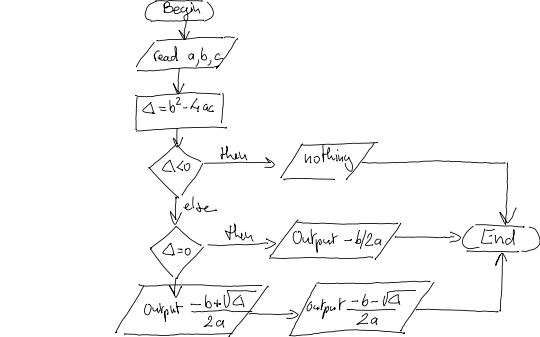 Begin
read a,b,c
Δ=b²-4ac
Δ<0
then
nothing
else
Δ=0
then
Output -b/2a
End
output -b+√Δ
2a
output -b-√Δ
2a